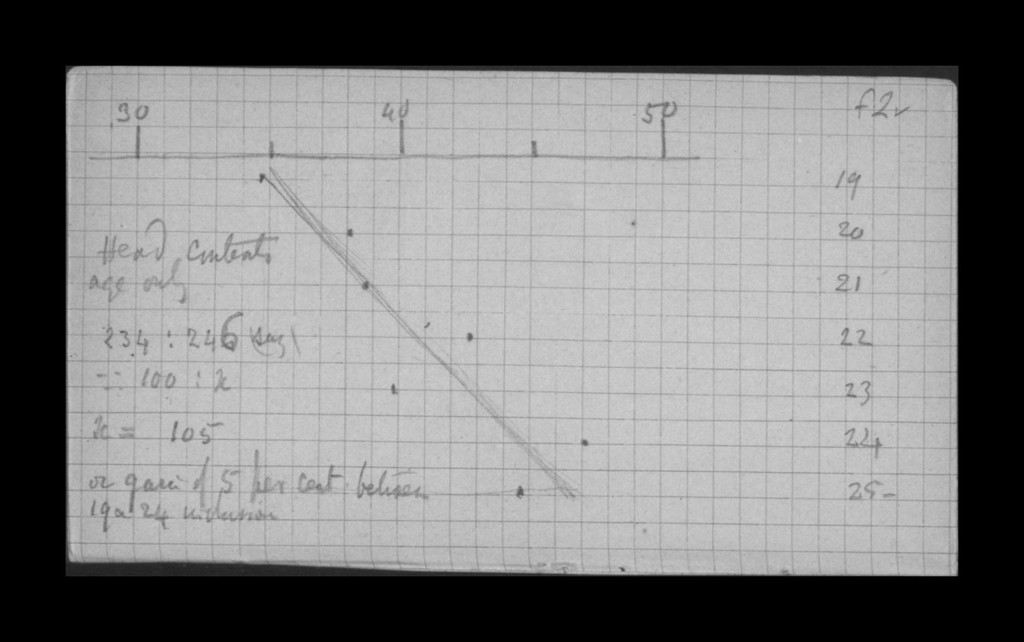 30 40 50 f2v
19
20
Head contents
age only
21
234 : 246 (say)
22
:: 100 : x
23
x = 105
24
or gain of 5 per cent between
25
19 & 24 inclusion